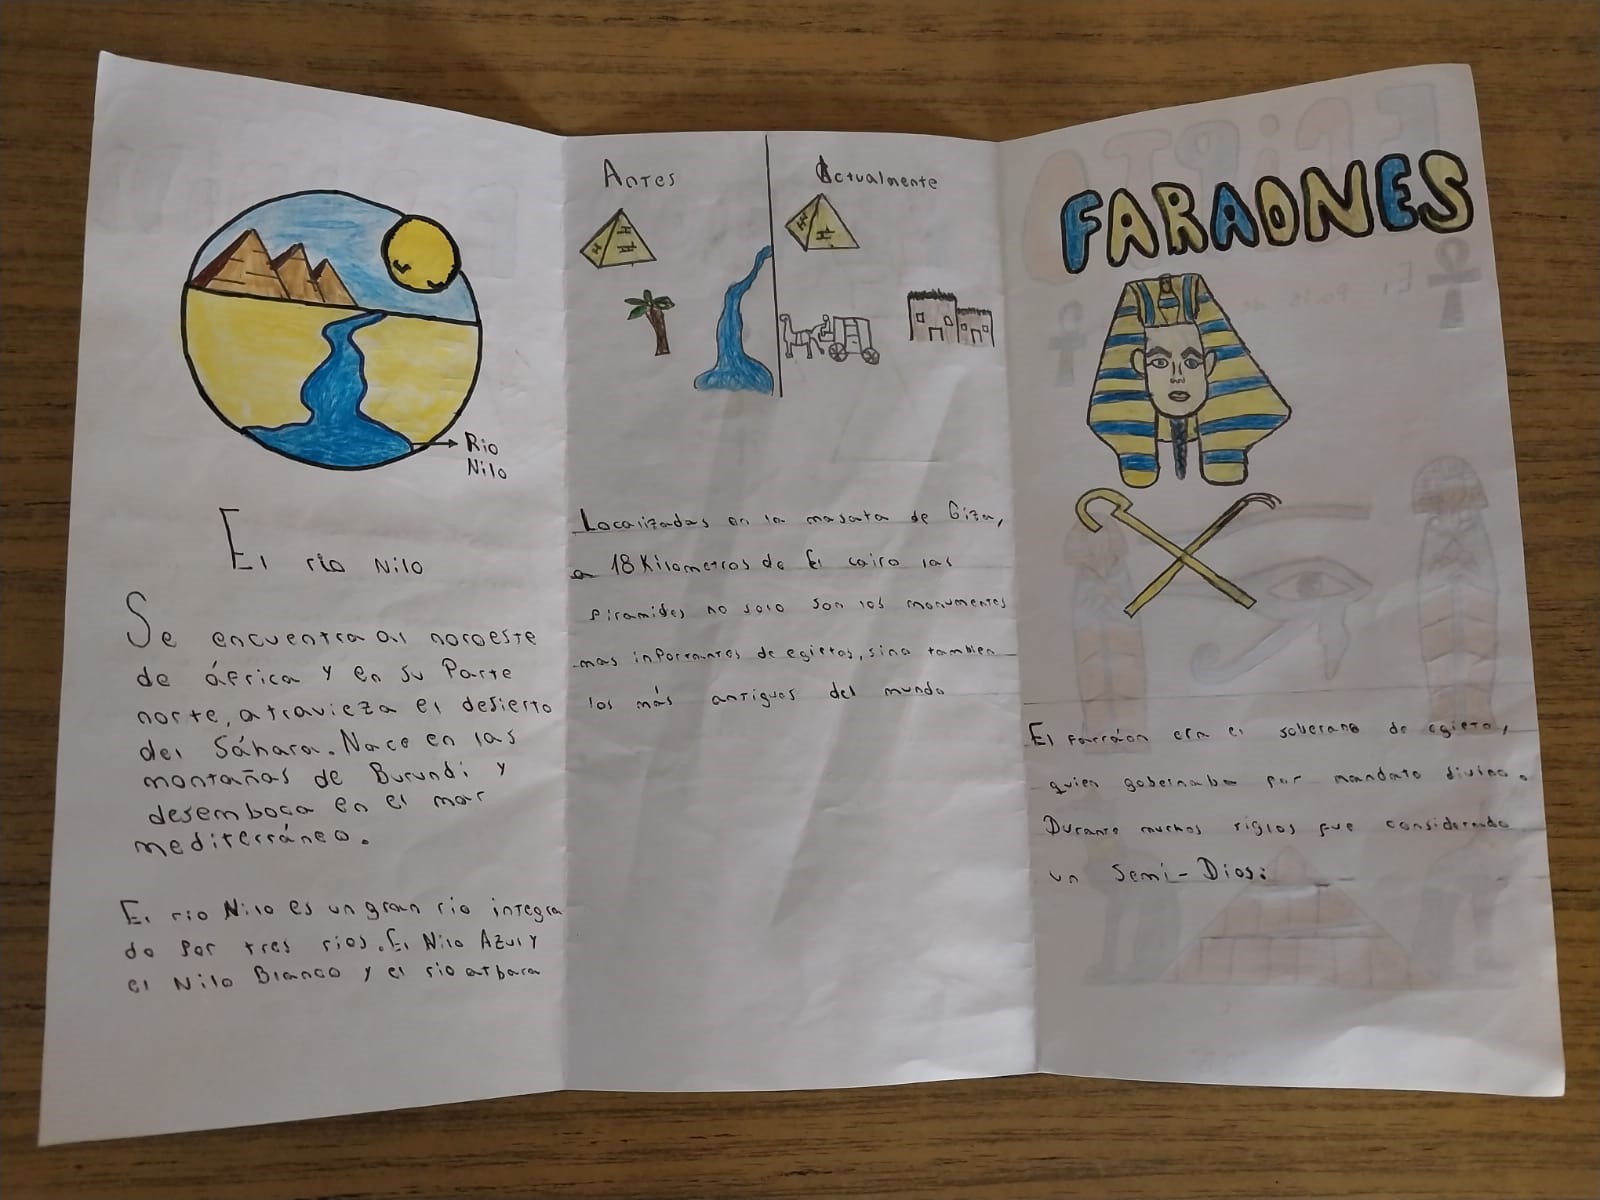 Rio
Nilo
El rio Nilo
Se encuentra al noroeste
de áfrica y en su Parte
norte, atravieza el desierto
del Sáhara. Nace en las
montañas de Burundi y
desemboca en el mar
mediterráneo.
El rio Nilo es un gran rio integra
do por tres rios. El Nilo Azul y
el Nilo Blanco y el rio atbara
Antes
Actualmente
Localizadas en la masata de Giza,
a 18 Kilometros de El cairo las
piramides no solo son los monumentos
mas inportantes de egiptos, sino tambien
los más antiguos del mundo
FARAONES
El farráon era el soberano de egipto,
quien gobernaba por mandato divino.
Durante muchos siglos fue considerado
un Semi-Dios: